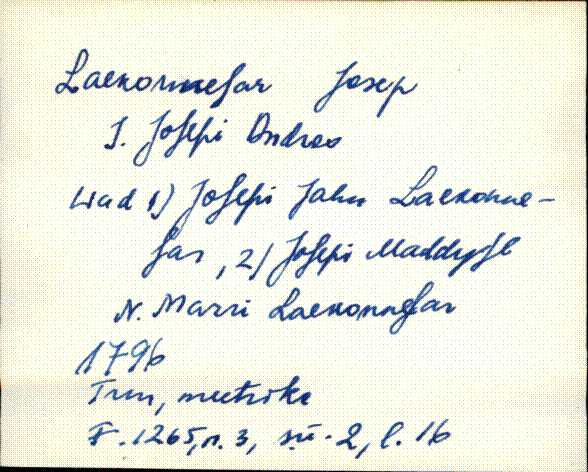 Laekonnesar Josep
I. Josepi Andres
Wad 1) Josepi Jahn Laekonne-
sar, 2) Josepi Maddysse
N. Marri Laekonnesar
1796
Trm, meetrika
F. 1265, n. 3, sü. 2, l. 16